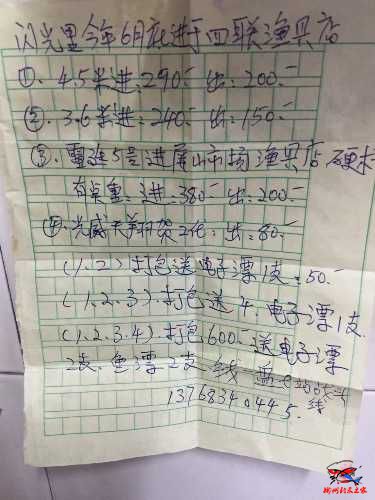 闪光里今年6月在进于四联渔具店
①.4.5米进:290.- 出:200.-
②.3.6米进:240.- 出:150.-
③.雷进5号进屏山市场渔具店硬术
有奖重:进:380.- 出:200.-
④.光威天羊杆架2代:出:80.-
(1.2)打包送电子漂1支:50.-
(1.2.3)打包送4.电子漂1支.
(1.2.3.4)打包600.-送电子漂
2支.鱼漂2支 线
线
13768340445.
柳州钓友之家